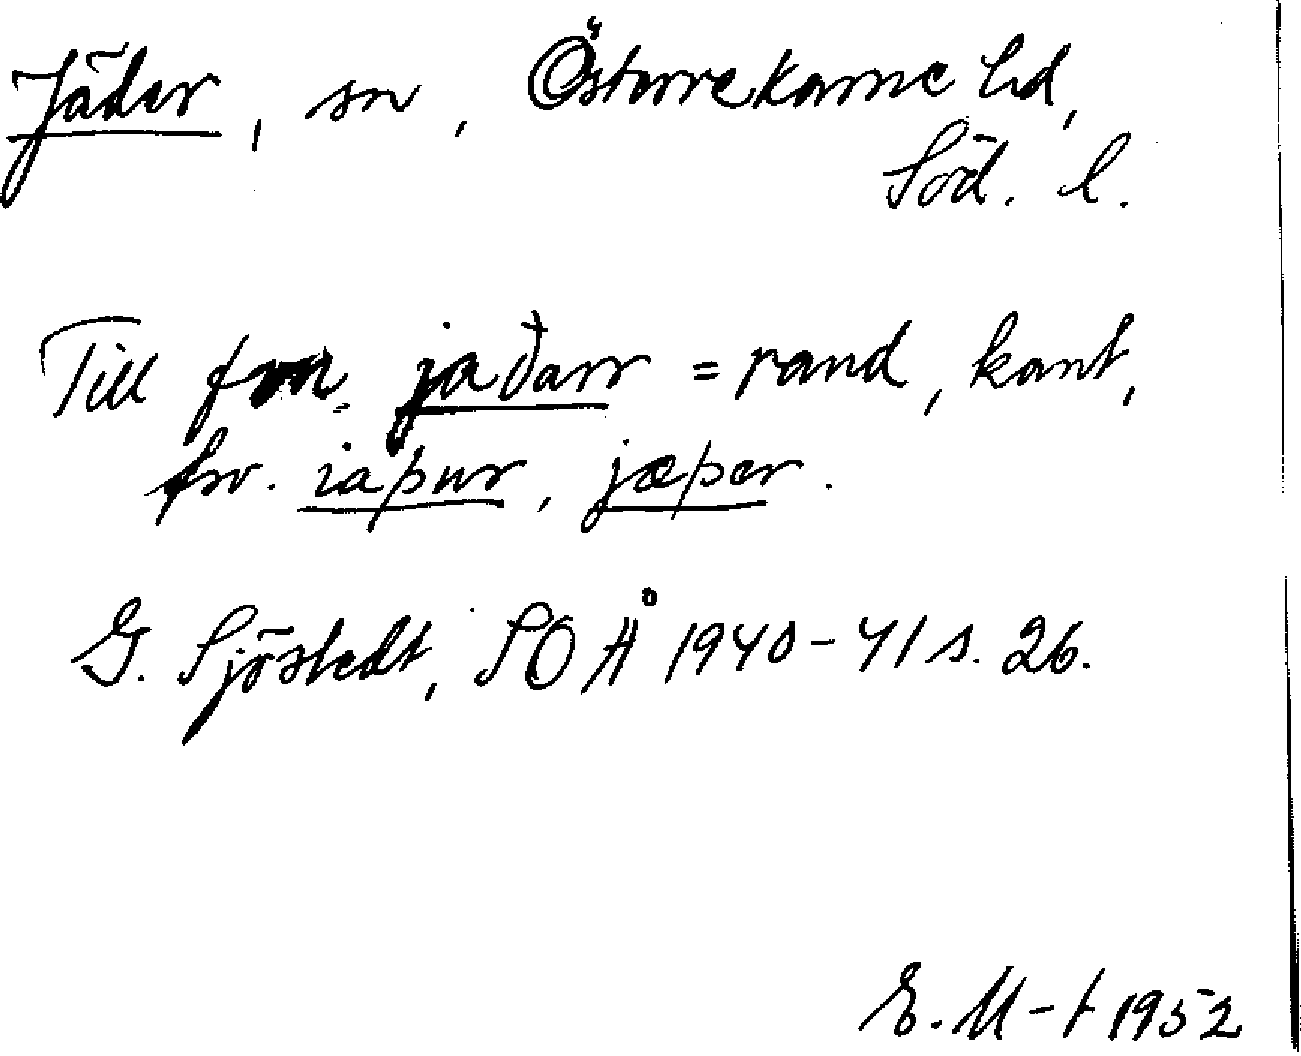 Jäder, sn, Österrekarne hd,
Söd. l.
Till fvn. jaðarr = rand, kant,
fsv. iaþur, jæþer.
G. Sjöstedt, SOÅ 1940-41 s. 26.
E. M-t 1952